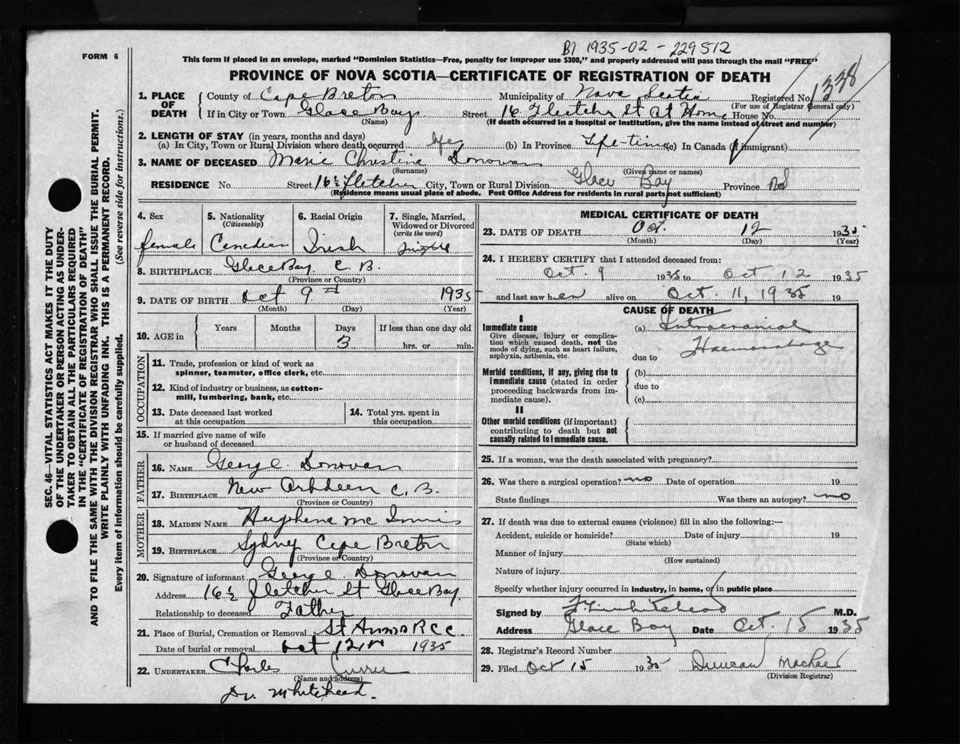 B1 1935-02-229512
FORM 6
This form if placed in an envelope, marked "Dominion Statistics—Free, penalty for improper use $300," and properly addressed will pass through the mail "FREE"
PROVINCE OF NOVA SCOTIA—CERTIFICATE OF REGISTRATION OF DEATH
1338
1. PLACE OF DEATH
County of Cape Breton Municipality of Nova Scotia Registered No.
(For use of Registrar General only)
If in City or Town Glace Bay Street 16 Fletcher St At Home House No.
(Name) (If death occurred in a hospital or institution, give the name instead of street and number)
2. LENGTH OF STAY (in years, months and days)
(a) In City, Town or Rural Division where death occurred (b) In Province Life-time (c) In Canada (if immigrant)
3. NAME OF DECEASED Marie Christina Donovan
(Surname) (Given name or names)
RESIDENCE No. Street 16½ Fletcher City, Town or Rural Division Glace Bay Province NS
(Residence means usual place of abode. Post Office Address for residents in rural parts not sufficient)
4. Sex
female
5. Nationality
(Citizenship)
Canadian
6. Racial Origin
Irish
7. Single, Married, Widowed or Divorced
(write the word)
single
8. BIRTHPLACE Glace Bay C. B.
(Province or Country)
9. DATE OF BIRTH Oct 9th 1935
(Month) (Day) (Year)
10. AGE in
Years Months Days If less than one day old
3 hrs. or min.
OCCUPATION
11. Trade, profession or kind of work as
spinner, teamster, office clerk, etc.
12. Kind of industry or business, as cotton-
mill, lumbering, bank, etc.
13. Date deceased last worked
at this occupation
14. Total yrs. spent in
this occupation
15. If married give name of wife
or husband of deceased
FATHER
16. NAME George Donovan
17. BIRTHPLACE New Aberdeen C. B.
(Province or Country)
MOTHER
18. MAIDEN NAME Mc Innis
19. BIRTHPLACE Sydney Cape Breton
(Province or Country)
20. Signature of informant George Donovan
Address 16½ Fletcher St Glace Bay
Relationship to deceased Father
21. Place of Burial, Cremation or Removal St Anns R C C.
Date of burial or removal Oct 12 1935
22. UNDERTAKER Charles Currie
(Name and address)
Dr. Whitehead.
MEDICAL CERTIFICATE OF DEATH
23. DATE OF DEATH Oct. 12 1935
(Month) (Day) (Year)
24. I HEREBY CERTIFY that I attended deceased from:
Oct 9 1935 to Oct 12 1935
and last saw her alive on Oct. 11, 1935 19
CAUSE OF DEATH
I
Immediate cause
Give disease, injury or complica-
tion which caused death, not the
mode of dying, such as heart failure,
asphyxia, asthenia, etc.
(a) Intracranial
Haemorrhage
due to
Morbid conditions, if any, giving rise to
immediate cause (stated in order
proceeding backwards from im-
mediate cause).
(b)
due to
(c)
II
Other morbid conditions (if important)
contributing to death but not
causally related to immediate cause.
25. If a woman, was the death associated with pregnancy?
26. Was there a surgical operation? no Date of operation 19
State findings Was there an autopsy? no
27. If death was due to external causes (violence) fill in also the following:—
Accident, suicide or homicide? Date of injury 19
(State which)
Manner of injury
(How sustained)
Nature of injury
Specify whether injury occurred in industry, in home, or in public place
Signed by M.D.
Address Glace Bay Date Oct. 15 1935
28. Registrar's Record Number
29. Filed Oct 15 1935 Duncan MacRae
(Division Registrar)
SEC. 46—VITAL STATISTICS ACT MAKES IT THE DUTY
OF THE UNDERTAKER OR PERSON ACTING AS UNDER-
TAKER TO OBTAIN ALL THE PARTICULARS REQUIRED
IN THE "CERTIFICATE OF REGISTRATION OF DEATH"
AND TO FILE THE SAME WITH THE DIVISION REGISTRAR WHO SHALL ISSUE THE BURIAL PERMIT.
WRITE PLAINLY WITH UNFADING INK. THIS IS A PERMANENT RECORD.
Every item of information should be carefully supplied. (See reverse side for instructions.)